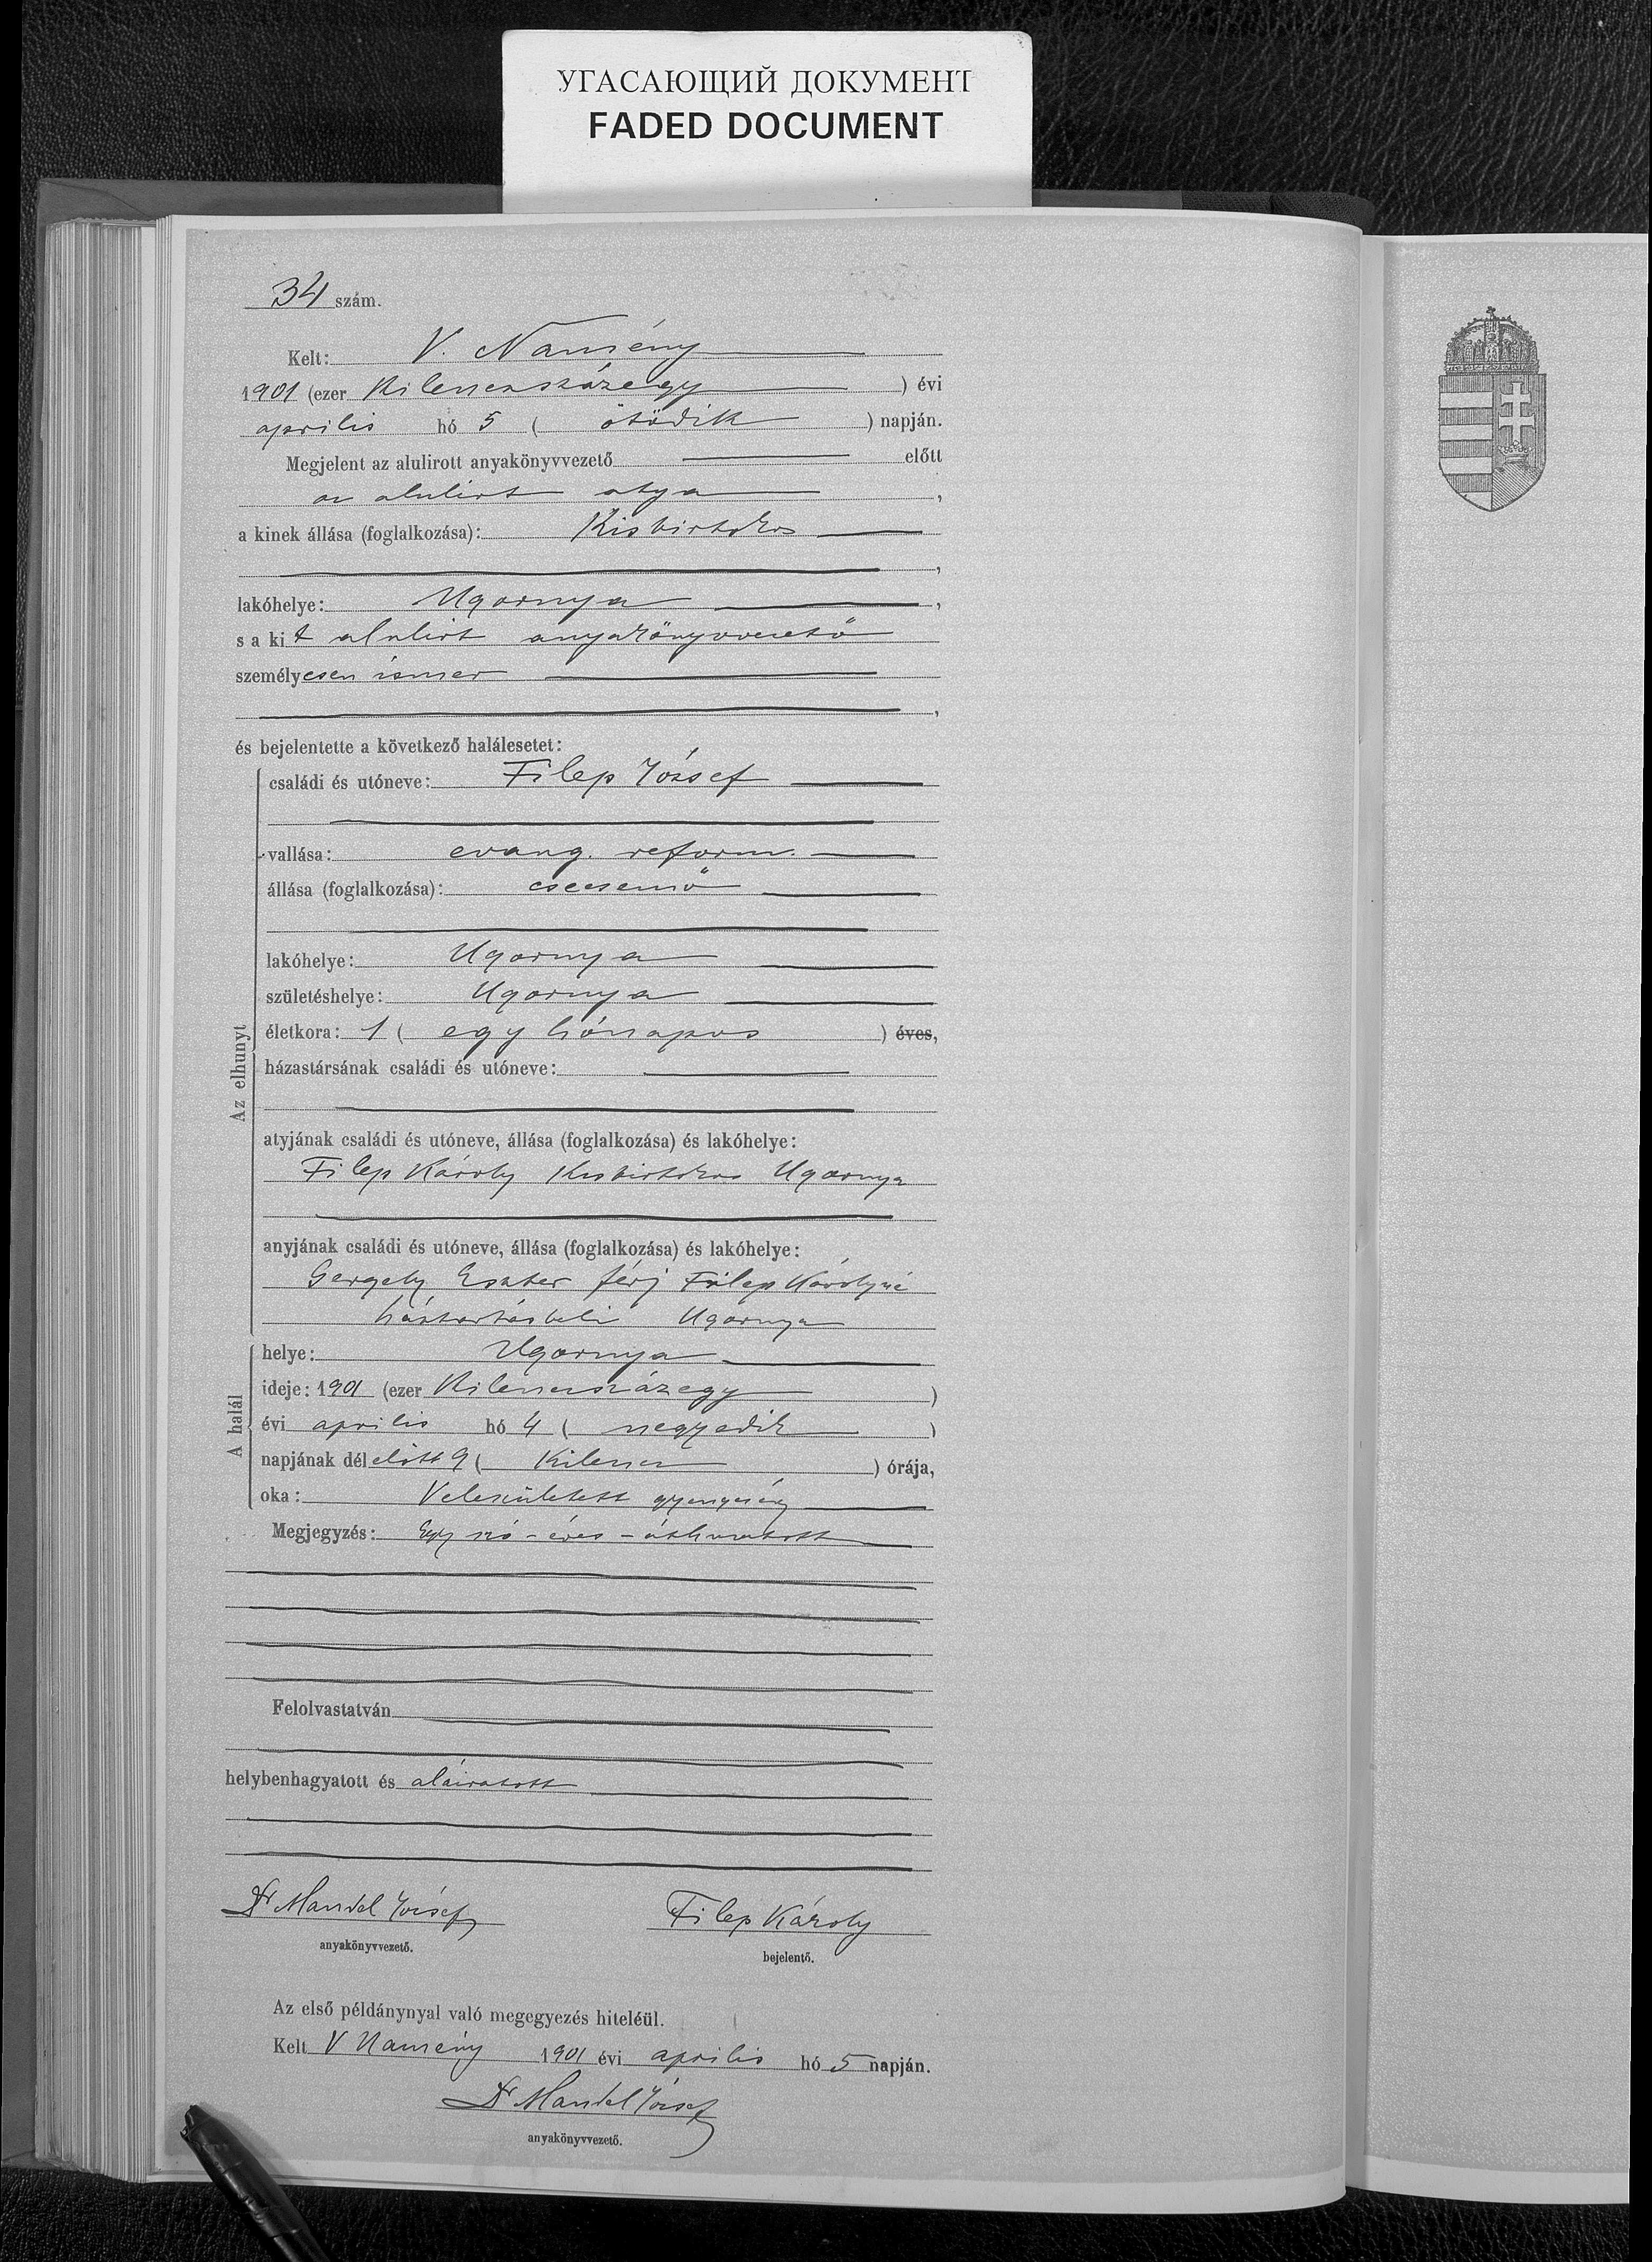 УГАСАЮЩИЙ ДОКУМЕНТ
FADED DOCUMENT
34 szám.
Kelt: V. Namény
1901 (ezer kilenczszázegy ) évi
aprilis hó 5 ( ötödik ) napján.
Megjelent az alulirott anyakönyvvezető előtt
az alulirt atya ,
a kinek állása (foglalkozása): Kisbirtokos
,
lakóhelye: Ugornya ,
s a kit alulirt anyakönyvvezető
személyesen ismer
,
és bejelentette a következő halálesetet:
Az elhunyt
családi és utóneve: Filep József
vallása: evang. reform.
állása (foglalkozása): csecsemő
lakóhelye: Ugornya
születéshelye: Ugornya
életkora: 1 ( egy hónapos ) éves,
házastársának családi és utóneve:
atyjának családi és utóneve, állása (foglalkozása) és lakóhelye:
Filep Károly Kisbirtokos Ugornya
anyjának családi és utóneve, állása (foglalkozása) és lakóhelye:
Gergely Eszter férj Filep Károlyné
háztartásbeli Ugornya
A halál
helye: Ugornya
ideje: 1901 (ezer kilenczszázegy )
évi aprilis hó 4 ( negyedik )
napjának délelőtt 9 ( kilencz ) órája,
oka: Veleszületett gyengeség
Megjegyzés: Egy szó - éves - áthuzatott
Felolvastatván
helybenhagyatott és aláiratott
Dr Mandel József
anyakönyvvezető.
Filep Károly
bejelentő.
Az első példánynyal való megegyezés hiteléül.
Kelt V Namény 1901 évi aprilis hó 5 napján.
Dr Mandel József
anyakönyvvezető.